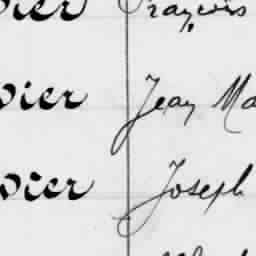 vier François
vier Jean Ma
vier Joseph